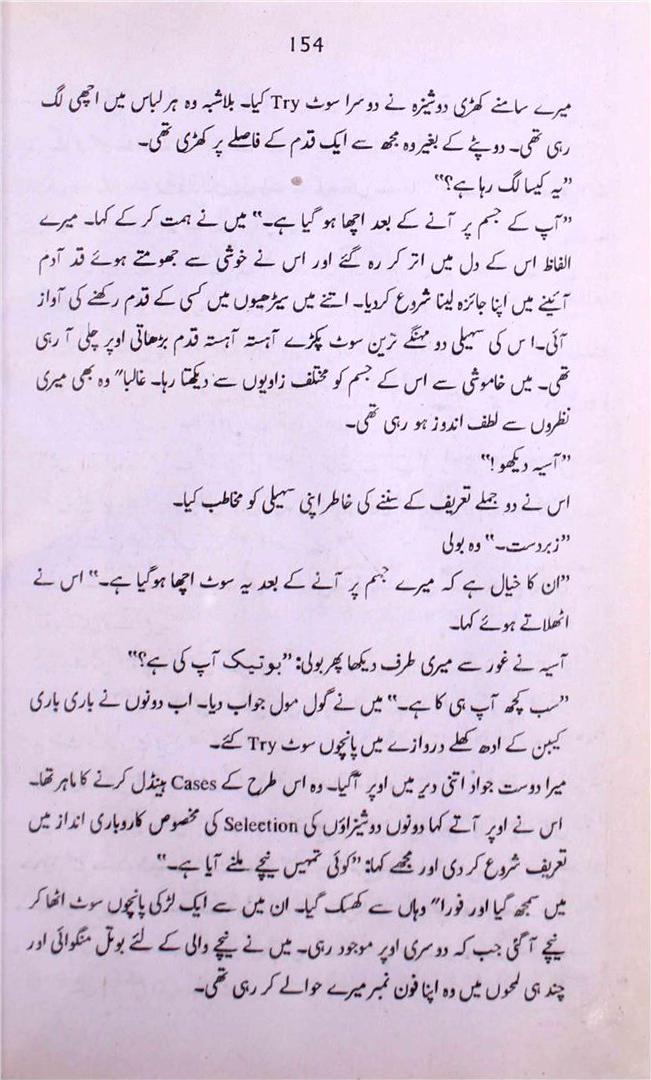 154
میرے سامنے کھڑی دوشیزہ نے دوسرا سوٹ Try کیا۔ بلاشبہ وہ ہر لباس میں اچھی لگ
رہی تھی۔ دوپٹے کے بغیر وہ مجھ سے ایک قدم کے فاصلے پر کھڑی تھی۔
”یہ کیسا لگ رہا ہے؟“
”آپ کے جسم پر آنے کے بعد اچھا ہو گیا ہے۔“ میں نے ہمت کر کے کہا۔ میرے
الفاظ اس کے دل میں اتر کر رہ گئے اور اس نے خوشی سے جھومتے ہوئے قد آدم
آئینے میں اپنا جائزہ لینا شروع کردیا۔ اتنے میں سیڑھیوں میں کسی کے قدم رکھنے کی آواز
آئی۔اس کی سہیلی دو مہنگے ترین سوٹ پکڑے آہستہ آہستہ قدم بڑھاتی اوپر چلی آ رہی
تھی۔ میں خاموشی سے اس کے جسم کو مختلف زاویوں سے دیکھتا رہا۔ غالبا“ وہ بھی میری
نظروں سے لطف اندوز ہو رہی تھی۔
”آسیہ دیکھو!“
اس نے دو جملے تعریف کے سننے کی خاطر اپنی سہیلی کو مخاطب کیا۔
”زبردست۔“ وہ بولی
”ان کا خیال ہے کہ میرے جسم پر آنے کے بعد یہ سوٹ اچھا ہوگیا ہے۔“ اس نے
اٹھلاتے ہوئے کہا۔
آسیہ نے غور سے میری طرف دیکھا پھر بولی: ”بوتیک آپ کی ہے؟“
”سب کچھ آپ ہی کا ہے۔“ میں نے گول مول جواب دیا۔ اب دونوں نے باری باری
کیبن کے ادھ کھلے دروازے میں پانچوں سوٹ Try کئے۔
میرا دوست جواد اتنی دیر میں اوپر آگیا۔ وہ اس طرح کے Cases ہینڈل کرنے کا ماہر تھا۔
اس نے اوپر آتے کہا دونوں دوشیزاؤں کی Selection کی مخصوص کاروباری انداز میں
تعریف شروع کر دی اور مجھے کہا: ”کوئی تمہیں نیچے ملنے آیا ہے۔“
میں سمجھ گیا اور فورا“ وہاں سے کھسک گیا۔ ان میں سے ایک لڑکی پانچوں سوٹ اٹھا کر
نیچے آ گئی جب کہ دوسری اوپر موجود رہی۔ میں نے نیچے والی کے لئے بوتل منگوائی اور
چند ہی لمحوں میں وہ اپنا فون نمبر میرے حوالے کر رہی تھی۔